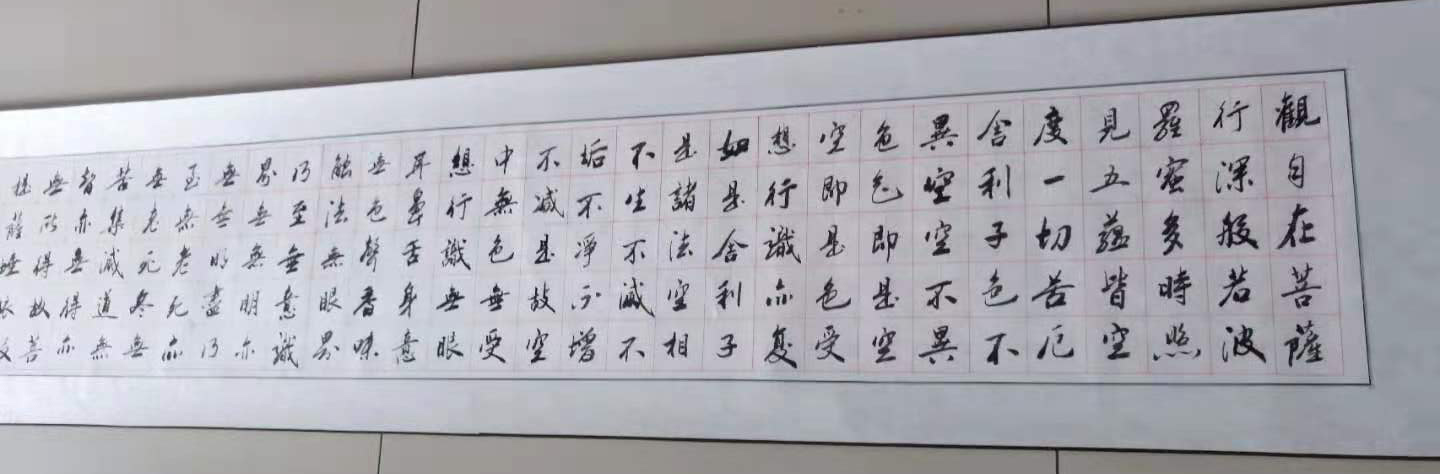 觀自在菩薩
行深般若波
羅蜜多時照
見五蘊皆空
度一切苦厄
舍利子色不
異空空不異
色色即是空
空即是色受
想行識亦复
如是舍利子
是諸法空相
不生不滅不
垢不淨不增
不减是故空
中無色無受
想行識無眼
耳鼻舌身意
無色聲香味
触法無眼界
乃至無意識
界無無明亦
無無明盡乃
至無老死亦
無老死尽無
苦集滅道無
智亦無得亦
無所得故菩
提薩埵依般